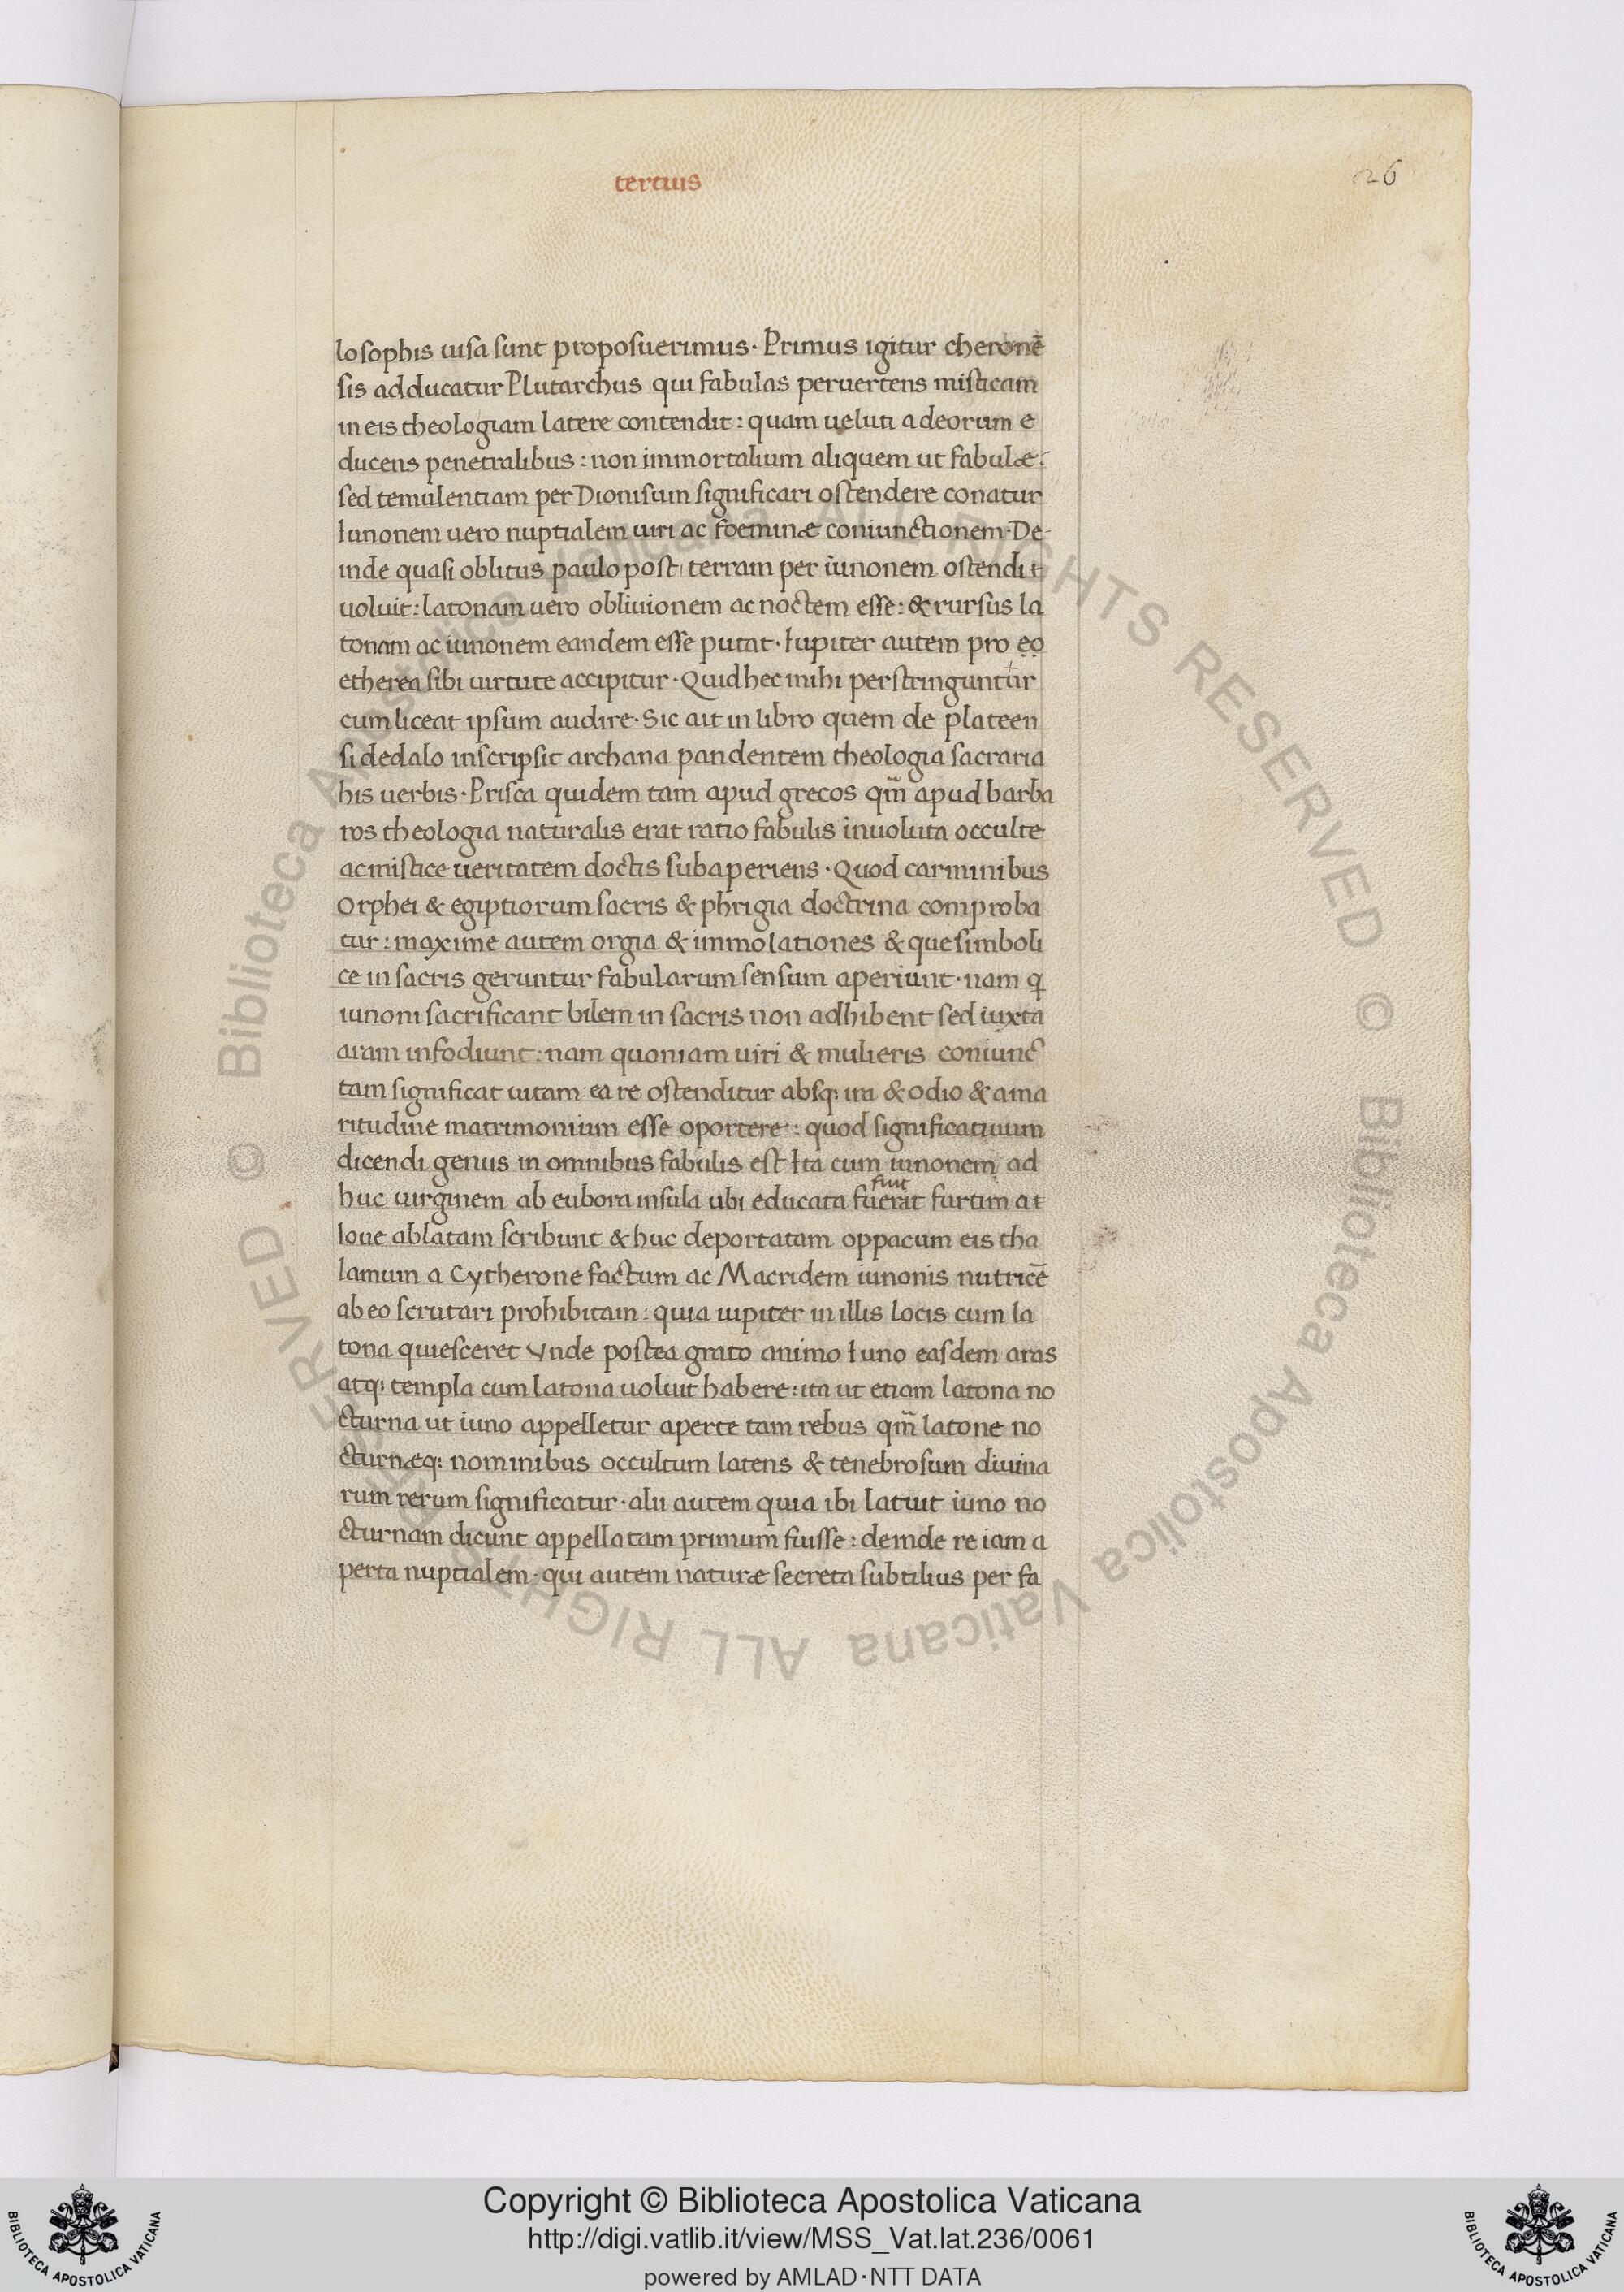 tertius
26
losophis uisa sunt proposuerimus· Primus igitur cheronē
sis adducatur Plutarchus qui fabulas peruertens misticam
in eis theologiam latere contendit: quam ueluti a deorum e
ducens penetralibus: non immortalium aliquem ut fabulæ:
sed temulentiam per Dionisum significari ostendere conatur
Iunonem uero nuptialem uiri ac foeminæ coniunctionem· De-
inde quasi oblitus paulo post terram per iunonem ostendit
uoluit: latonam uero obliuionem ac noctem esse: & rursus la
tonam ac iunonem eandem esse putat· Iupiter autem pro eo
etherea sibi uirtute accipitur· Quid hec mihi perstringuntur
cum liceat ipsum audire· Sic ait in libro quem de plateen
si dedalo inscripsit archana pandentem theologia sacraria
his uerbis· Prisca quidem tam apud grecos qm̄ apud barba
ros theologia naturalis erat ratio fabulis inuoluta occulte
ac mistice ueritatem doctis subaperiens· Quod carminibus
Orphei & egiptiorum sacris & phrigia doctrina comproba
tur: maxime autem orgia & immolationes & que simboli
ce in sacris geruntur fabularum sensum aperiunt· nam q
iunoni sacrificant bilem in sacris non adhibent sed iuxta
aram infodiunt: nam quoniam uiri & mulieris coniunc
tam significat uitam ea re ostenditur absq; ira & odio & ama
ritudine matrimonium esse oportere: quod significatiuum
dicendi genus in omnibus fabulis est Ita cum iunonem ad
fuit
huc uirginem ab eubora insula ubi educata fuerat furtim a t
Ioue ablatam scribunt & huc deportatam oppacum eis tha
lamum a Cytherone factum ac Macridem iunonis nutricē
ab eo scrutari prohibitam: quia iupiter in illis locis cum la
tona quiesceret Vnde postea grato animo Iuno easdem aras
atq; templa cum latona uoluit habere: ita ut etiam latona no
cturna ut iuno appelletur aperte tam rebus qm̄ latone no
cturnæq; nominibus occultum latens & tenebrosum diuina
rum rerum significatur· alii autem quia ibi latuit iuno no
cturnam dicunt appellatam primum fuisse: deinde re iam a
perta nuptialem· qui autem naturæ secreta subtilius per fa
© Biblioteca Apostolica Vaticana ALL RIGHTS RESERVED
© Biblioteca Apostolica Vaticana ALL RIGHTS RESERVED
Copyright © Biblioteca Apostolica Vaticana
http://digi.vatlib.it/view/MSS_Vat.lat.236/0061
powered by AMLAD·NTT DATA
BIBLIOTECA APOSTOLICA VATICANA
BIBLIOTECA APOSTOLICA VATICANA